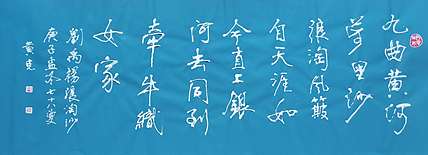 九曲黄河
萬里沙
浪淘风簸
自天涯如
今直上銀
河去同到
牽牛織
女家
劉禹楊浪淘沙
庚子盛冬七十八叟
黄